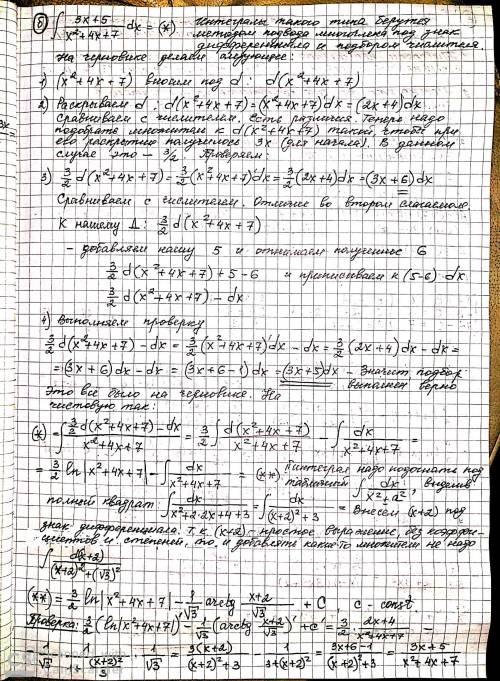 б) ∫ (3x+5)/(x²+4x+7) dx = (*) Интегралы такого типа берутся
методом подвода многочлена под знак
дифференциала и подбором числителя
На черновике делаем следующее:
1) (x²+4x+7) вносим под d: d(x²+4x+7)
2) Раскрываем d: d(x²+4x+7)=(x²+4x+7)'dx=(2x+4)dx
Сравниваем с числителем. Есть различия. Теперь надо
подобрать множитель к d(x²+4x+7) такой, чтобы при
его раскрытии получилось 3x (для начала). В данном
случае это – 3/2. Проверяем:
3) 3/2 d(x²+4x+7)=3/2(x²+4x+7)'dx=3/2(2x+4)dx=(3x+6)dx
Сравниваем с числителем. Отличие во втором слагаемом.
К нашему Д: 3/2 d(x²+4x+7)
– добавляем нашу 5 и отнимаем полученные 6
3/2 d(x²+4x+7)+5-6 и приписываем к (5-6) dx
3/2 d(x²+4x+7)-dx
4) Выполняем проверку
3/2 d(x²+4x+7)-dx=3/2(x²+4x+7)'dx-dx=3/2(2x+4)dx-dx=
=(3x+6)dx-dx=(3x+6-1)dx=(3x+5)dx - Значит подбор
выполнен верно
Это все было на черновике. На
чистовую так:
(*)=∫ (3/2 d(x²+4x+7)-dx)/(x²+4x+7) = 3/2 ∫ d(x²+4x+7)/(x²+4x+7) - ∫ dx/(x²+4x+7) =
= 3/2 ln|x²+4x+7| - ∫ dx/(x²+4x+7) = (**) Интеграл надо подогнать под
табличный ∫ dx/(x²+a²), выделив
полный квадрат ∫ dx/(x²+2·2x+4+3) = ∫ dx/((x+2)²+3) = Внесем (x+2) под
знак дифференциала. Т.к. (x+2) - простое выражение, без коэффи-
циентов и степеней, то и добавлять какие-то множители не надо
∫ d(x+2)/((x+2)²+(√3)²)
(**)=3/2 ln|x²+4x+7| - 1/√3 arctg (x+2)/√3 + C, c-const
Проверка: 3/2(ln|x²+4x+7|)' - 1/√3 (arctg (x+2)/√3)' + c' = 3/2 · (2x+4)/(x²+4x+7) -
- 1/√3 · 1/(1+(x+2)²/3) · 1/√3 = 3(x+2)/((x+2)²+3) - 1/(3+(x+2)²) = (3x+6-1)/((x+2)²+3) = (3x+5)/(x²+4x+7)